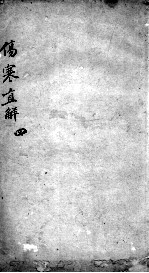 傷寒直解四